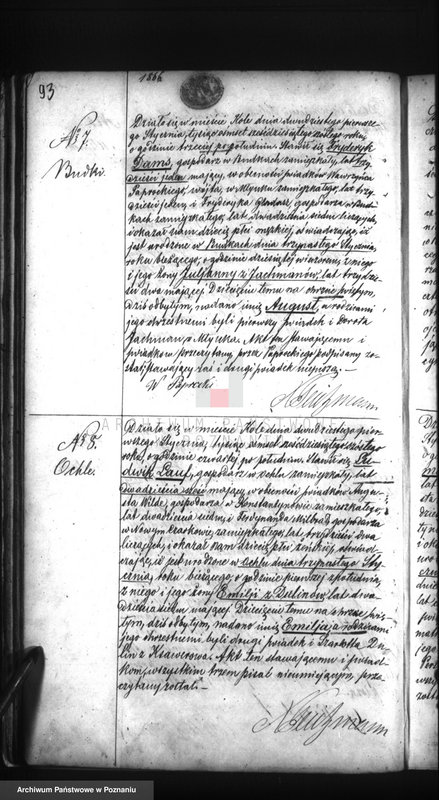 93
1866
No 7.
Budki.
Działo się w mieście Kole dnia dwudziestego pierwsze-
go Stycznia, tysiąc ośmset sześćdziesiątego szóstego roku,
o godzinie trzeciej po południu. Stawił się Fryderyk
gospodarz w Budkach zamieszkały, lat trzy-
dzieści jeden mający, w obecności świadków Wawrzyńca
Paprockiego, wójta, w Młynku zamieszkałego, lat trzy-
dzieści i Fryderyka gospodarza w Bud-
kach zamieszkałego, lat dwadzieścia siedm liczących,
i okazał nam dziecię płci męzkiej, oświadczając iż
jest urodzone w Budkach dnia trzynastego Stycznia,
roku bieżącego, o godzinie dziesiątej wieczorem, z niego
i jego żony Juljanny z Jachmanów, lat trzydzie-
ści dwa mającej. Dziecięciu temu na chrzcie świętym,
dziś odbytym, nadano imię August, a rodzicami
jego chrzestnemi byli pierwszy świadek i Dorota
Jachman, z Młynka. Akt ten stawającemu i
świadkom przeczytany, przez Paprockiego podpisany zo-
stał, stawający zaś i drugi świadek niepiszą.
W Paprocki
No 8.
Ochle.
Działo się w mieście Kole dnia dwudziestego pier-
wszego Stycznia, tysiąc ośmset sześćdziesiątego szóstego
roku, o godzinie czwartej po południu. Stawił się Lu-
dwik gospodarz w Ochlu zamieszkały, lat
dwadzieścia mający, w obecności świadków Augu-
sta Wilde, gospodarza w Konstantynowie zamieszkałego,
lat dwadzieścia siedm, i Ferdynanda gospodarza
w Nowym zamieszkałego, lat trzydzieści dwa
liczących, i okazał nam dziecię płci żeńskiej, oświad-
czając, iż jest urodzone w Ochlu dnia trzynastego Sty-
cznia, roku bieżącego, o godzinie pierwszej z południa,
z niego i jego żony Emilji z Dulinów, lat dwa-
dzieścia mającej. Dziecięciu temu na chrzcie świę-
tym, dziś odbytym, nadano imię Emilja, a rodzicami
jego chrzestnemi byli drugi świadek i Du-
lin z Ksawerowa. Akt ten stawającemu i świad-
kom, wszystkim trzem pisać nieumiejącym, prze-
czytany został.
Archiwum Państwowe w Poznaniu